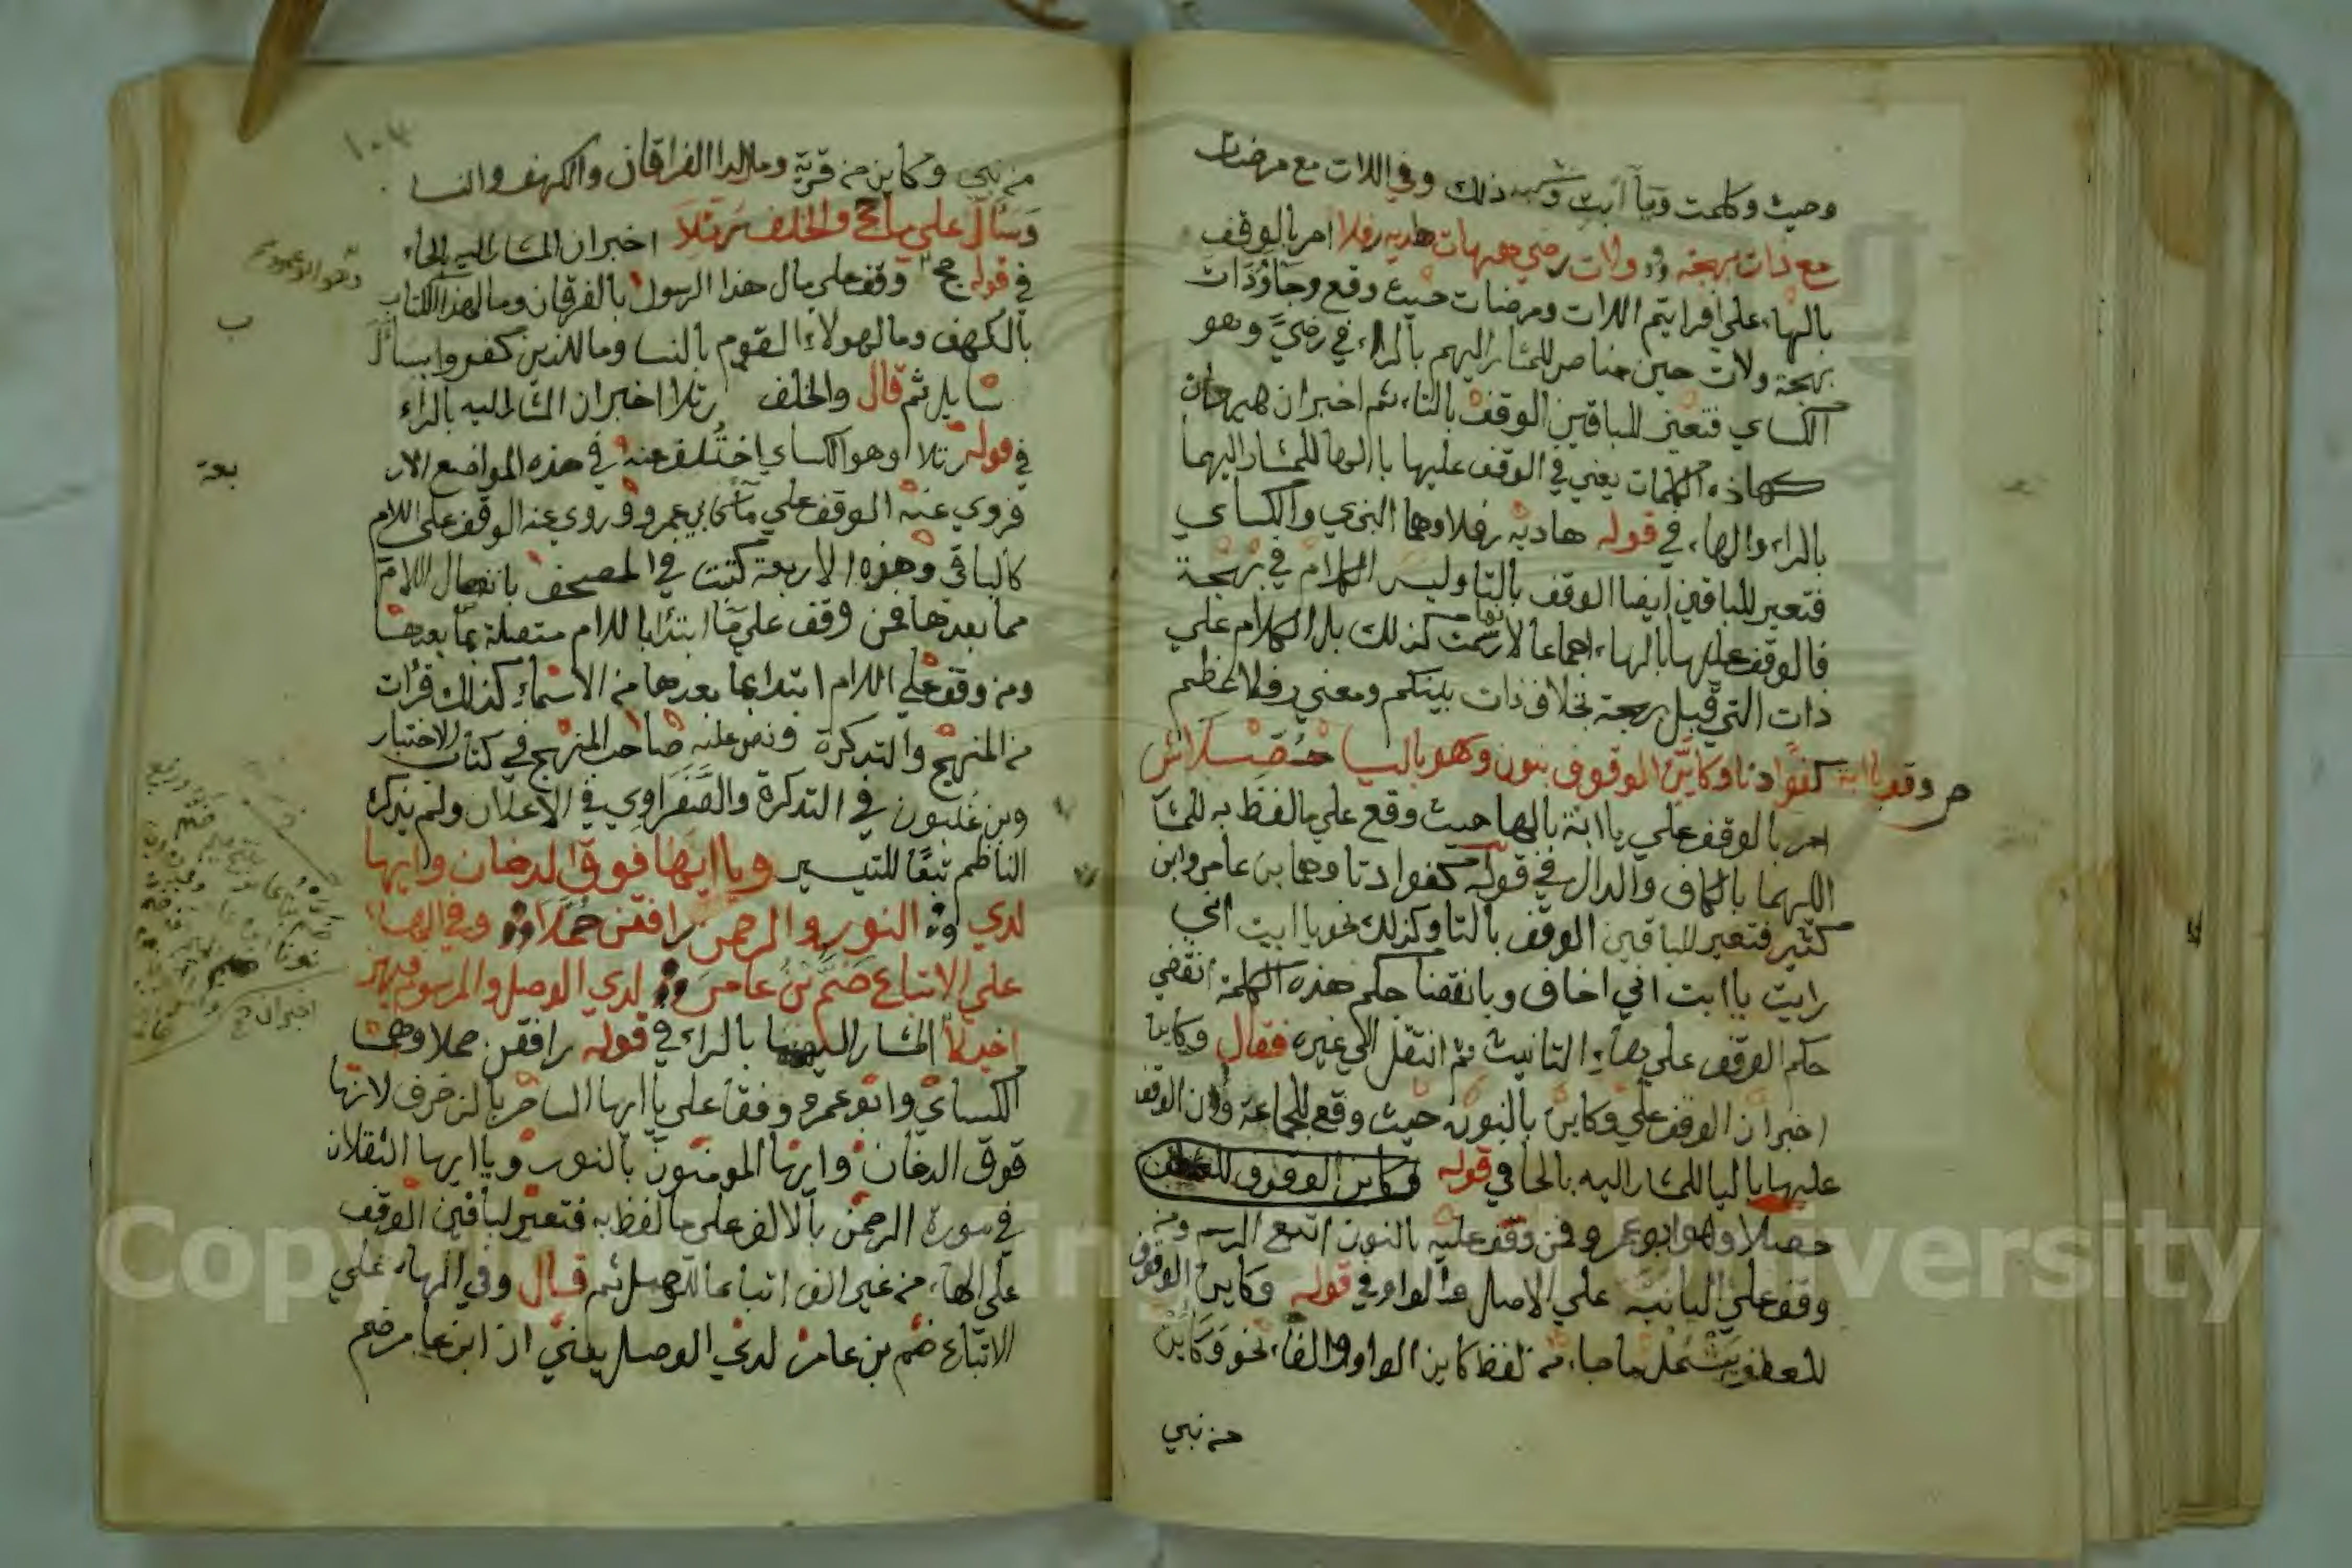 وحيث وكلمت ويا أبت وشبه ذلك وفي اللات مع مرضات
مع ذات بهجة ولات رضي هيهات هاديه رفلا امر بالوقف
بالهاء على افرايتم اللات ومرضات حيث وقع وجا وذات
بهجة ولات حين مناص للمشار اليهم بالراء في رضي وهو
الكساي فتعين للباقين الوقف بالتاء ثم اخبر ان هيهات
كهاذه الكلمات يعني في الوقف عليها بالها للمشار اليهما
بالراء والهاء في قوله هاديه رفلا وهما البزي والكساي
فتعين للباقين ايضا الوقف بالتا وليس الكلام في بهجة
فالوقف عليها بالهاء اجماعا لانها رسمت كذلك بل الكلام علي
ذات التي قبل بهجة بخلاف ذات بينكم ومعني رفلا عظم
وقف يا ابه كفوا دنا وكاين الوقوف بنون وهو باليا حصلا ش
امر بالوقف علي يا ابة بالها حيث وقع علي ما لفظ به للمشا
اليهما بالكاف والدال في قوله كفوا دنا وهما بن عامر وابن
كثير فتعين للباقين الوقف بالتا وكذلك نحو يا ابت اني
رايت يا ابت اني اخاف وبانقضا حكم هذه الكلمة انقضي
حكم الوقف علي هاء التانيث ثم انتقل الي غيره فقال وكاين
اخبر ان الوقف علي وكاين بالنون حيث وقع للجماعة وان الوقف
عليها باليا للمشار اليه بالحا في قوله وكاين الوقوف للعطف
حصلا وهو ابو عمرو فمن وقف عليه بالنون اتبع الرسم ومن
وقف علي اليا نبه علي الاصل والواو في قوله وكاين الوقوف
للعطف يشمل ما جاء من لفظ كاين بالواو والفاء نحو وكاين
من نبي
١٠٣
من نبي وكاين من قرية ومال لدا الفرقان والكهف والنسا
وسال علي ما حج والخلف رتلا اخبر ان المشار اليه بالحاء
في قوله حج وقف علي مال هذا الرسول بالفرقان ومال هذا الكتاب
بالكهف ومال هولاء القوم بالنسا ومال الذين كفروا بسال
سايل ثم قال والخلف رتلا اخبر ان المشار اليه بالراء
في قوله رتلا وهو الكساي اختلف عنه في هذه المواضع الار
بعة
فروي عنه الوقف علي ما كابي عمرو وروي عنه الوقف علي اللام
كالباقي وهذه الاربعة كتبت في المصحف بانفصال اللام
مما بعدها فمن وقف علي ما ابتدا باللام متصلة بما بعدها
ومن وقف علي اللام ابتدا بما بعدها من الاسماء كذلك قرات
من المنهج والتذكرة ونص عليه صاحب المنهج في كتاب الاختبار
وبن غلبون في التذكرة والصفراوي في الاعلان ولم يذكره
الناظم تبعا للتيسير ويا ايها فوق الدخان وايها
لدي النور والرحمن رافقن حملا وفي الها
علي الاتباع ضم بن عامر لدي الوصل والمرسوم فيهن
اخيلا المشار اليهما بالراء في قوله رافقن حملا وهما
الكساي وابو عمرو وقفا علي يا ايها الساحر بالزخرف لانها
فوق الدخان وايها المومنون بالنور ويا ايها الثقلان
في سورة الرحمن بالالف علي ما لفظ به فتعين لباقين الوقف
علي الهاء من غير الف اتباعا للوصل ثم قال وفي الهاء علي
الاتباع ضم بن عامر لدي الوصل يعني ان ابن عامر ضم
Copyright © King Saud University